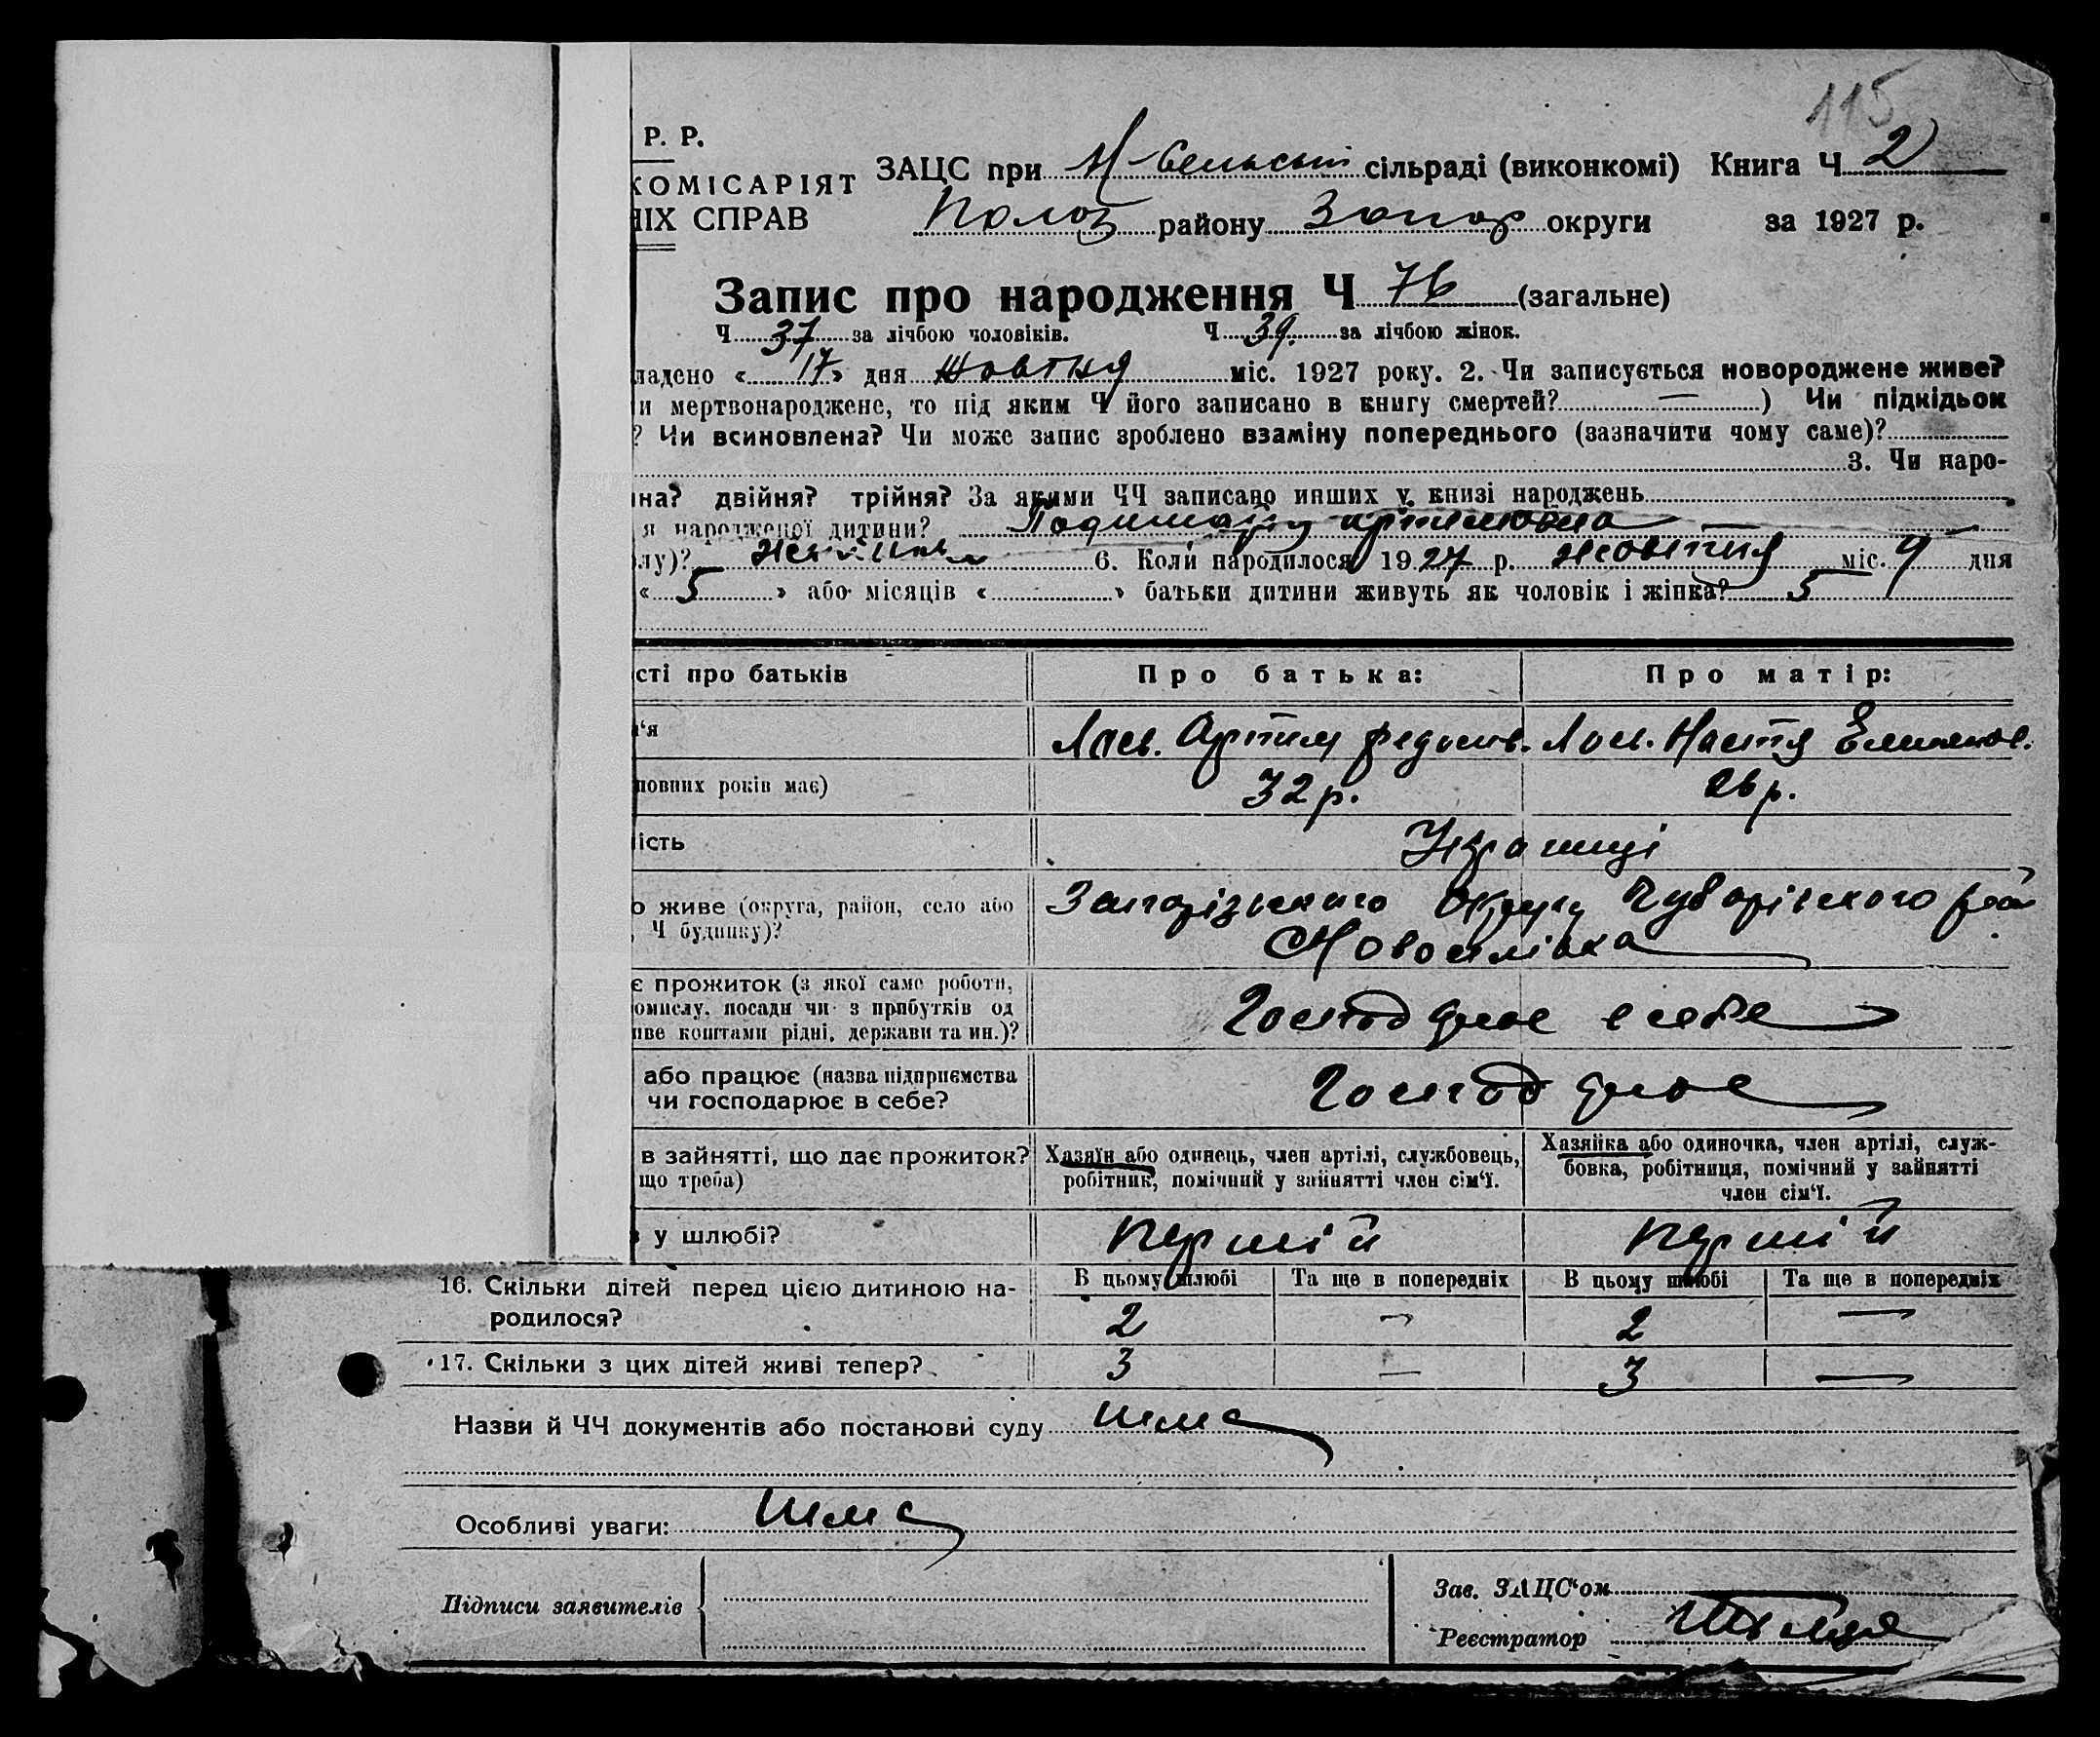 115
Р. Р.
ЗАЦС при сільраді (виконкомі) Книга Ч 2
КОМІСАРІЯТ
ІХ СПРАВ
Полог району Запор округи за 1927 р.
Запис про народження Ч 76 (загальне)
Ч 37 за лічбою чоловіків. Ч 39. за лічбою жінок.
ладено « 17 » дня жовтня міс. 1927 року. 2. Чи записується новороджене живе?
и мертвонароджене, то під яким Ч його записано в книгу смертей? — ) Чи підкідьок
? Чи всиновлена? Чи може запис зроблено взаміну попереднього (зазначити чому саме)?
3. Чи наро-
на? двійня? трійня? За якими ЧЧ записано инших у книзі народжень
я народженої дитини?
лу)? 6. Коли народилося 1927 р. жовтня міс. 9 дня
« 5 » або місяців « » батьки дитини живуть як чоловік і жінка? 5
сті про батьків Про батька: Про матір:
'я Артим Настя
повних років має) 32 р. 26 р.
ість Українці
о живе (округа, район, село або
Ч будинку)?
Запорізького округу Чубарівського рай
Новосилівка
є прожиток (з якої саме роботи,
омислу, посади чи з прибутків од
иве коштами рідні, держави та ин.)?
Господарює в себе
або працює (назва підприємства
чи господарює в себе?
Господарює
в зайнятті, що дає прожиток?
що треба)
Хазяїн або одинець, член артілі, службовець,
робітник, помічний у зайнятті член сім'ї.
Хазяйка або одиночка, член артілі, служ-
бовка, робітниця, помічний у зайнятті
член сім'ї.
у шлюбі? перший перший
16. Скільки дітей перед цією дитиною на-
родилося?
В цьому шлюбі Та ще в попередніх В цьому шлюбі Та ще в попередніх
2 — 2 —
17. Скільки з цих дітей живі тепер? 3 — 3 —
Назви й ЧЧ документів або постанови суду нема
Особливі уваги: нема
Підписи заявителів
Зав. ЗАЦС'ом
Реєстратор